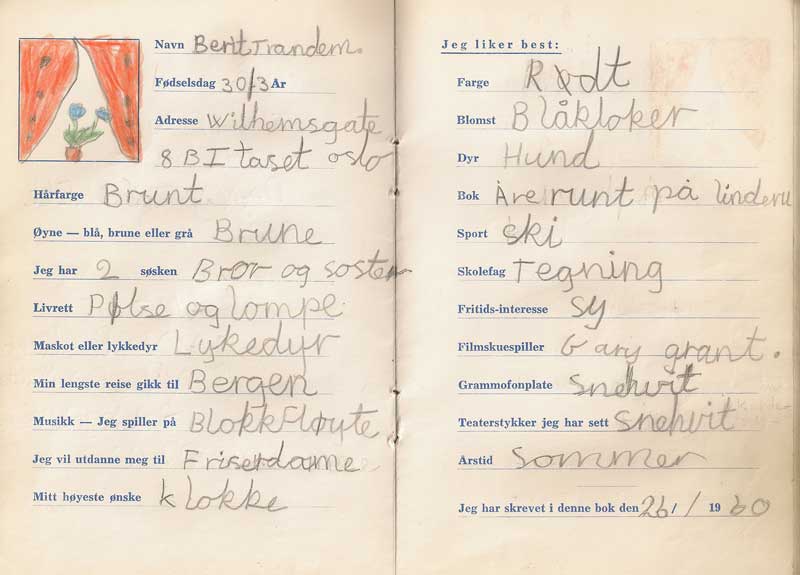 Navn Berit Trandem.
Fødselsdag 30/3 År
Adresse Wilhemsgate
8 B I taset oslo
Hårfarge Brunt
Øyne — blå, brune eller grå Brune
Jeg har 2 søsken Bror og soster
Livrett Pølse og lompe.
Maskot eller lykkedyr Lykedyr
Min lengste reise gikk til Bergen
Musikk — Jeg spiller på Blokkfløyte
Jeg vil utdanne meg til Friserdame
Mitt høyeste ønske klokke
Jeg liker best:
Farge Rødt
Blomst Blåkloker
Dyr Hund
Bok Åre runt på linderu
Sport ski
Skolefag Tegning
Fritids-interesse sy
Filmskuespiller Gary grant.
Grammofonplate Snehvit
Teaterstykker jeg har sett snehvit
Årstid Sommer
Jeg har skrevet i denne bok den 26/ / 19 60